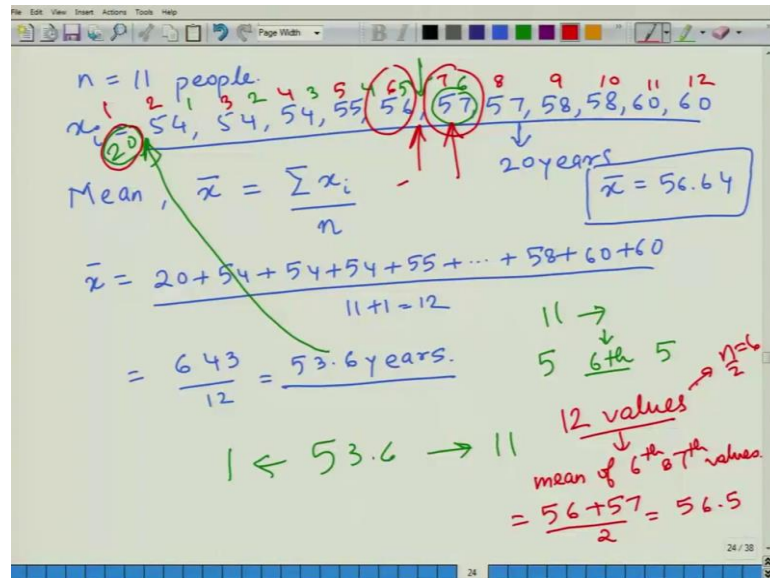 File Edit View Insert Actions Tools Help
Page Width
B I
n = 11 people.
1 2 1 3 2 4 3 5 4 6 5 7 6 8 9 10 11 12
20, 54, 54, 54, 55, 56, 57, 57, 58, 58, 60, 60
20 years
Mean, x̄ = Σ xᵢ / n
x̄ = 56.64
x̄ = 20+54+54+54+55+...+58+60+60
11+1=12
= 643/12 = 53.6 years.
11 →
5 6th 5
1 ← 53.6 → 11
n/2 = 6
12 values
mean of 6th & 7th values.
= 56+57/2 = 56.5
24 / 38
24